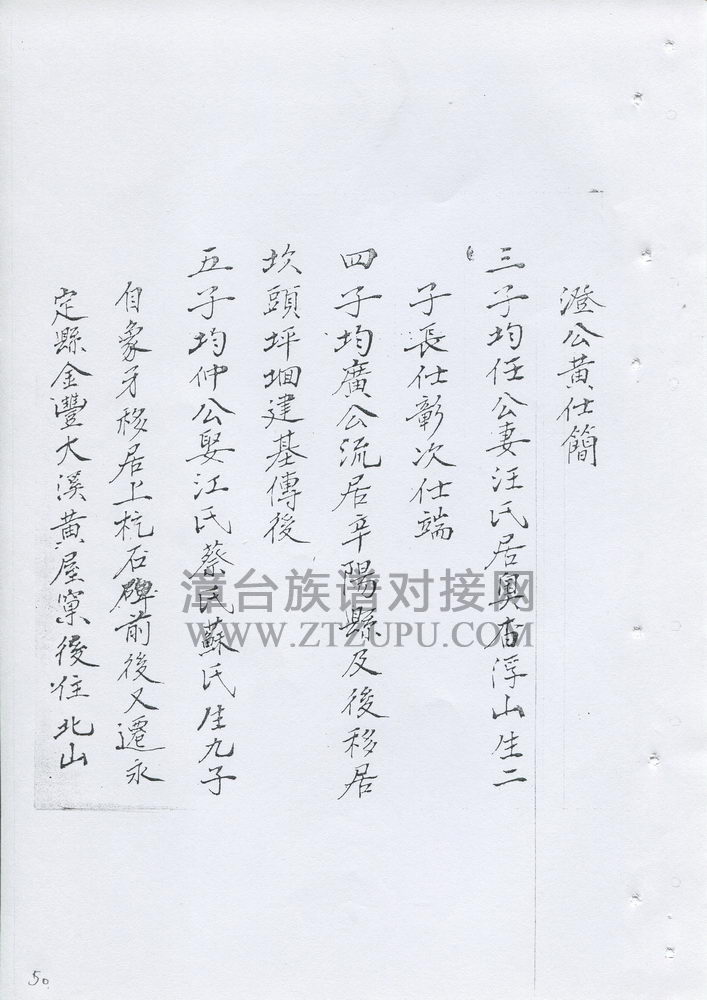 澄公黄仕簡
三子均任公妻汪氏居奥杳浮山生二
子長仕彰次仕端
四子均廣公流居辛陽縣及後移居
坎頭坪垇建基傳後
五子均仲公娶江氏蔡氏蘇氏生九子
自象牙移居上杭石碑前後又遷永
定縣金豐大溪黄屋寮後住北山
漳台族谱对接网
WWW.ZTZUPU.COM
50